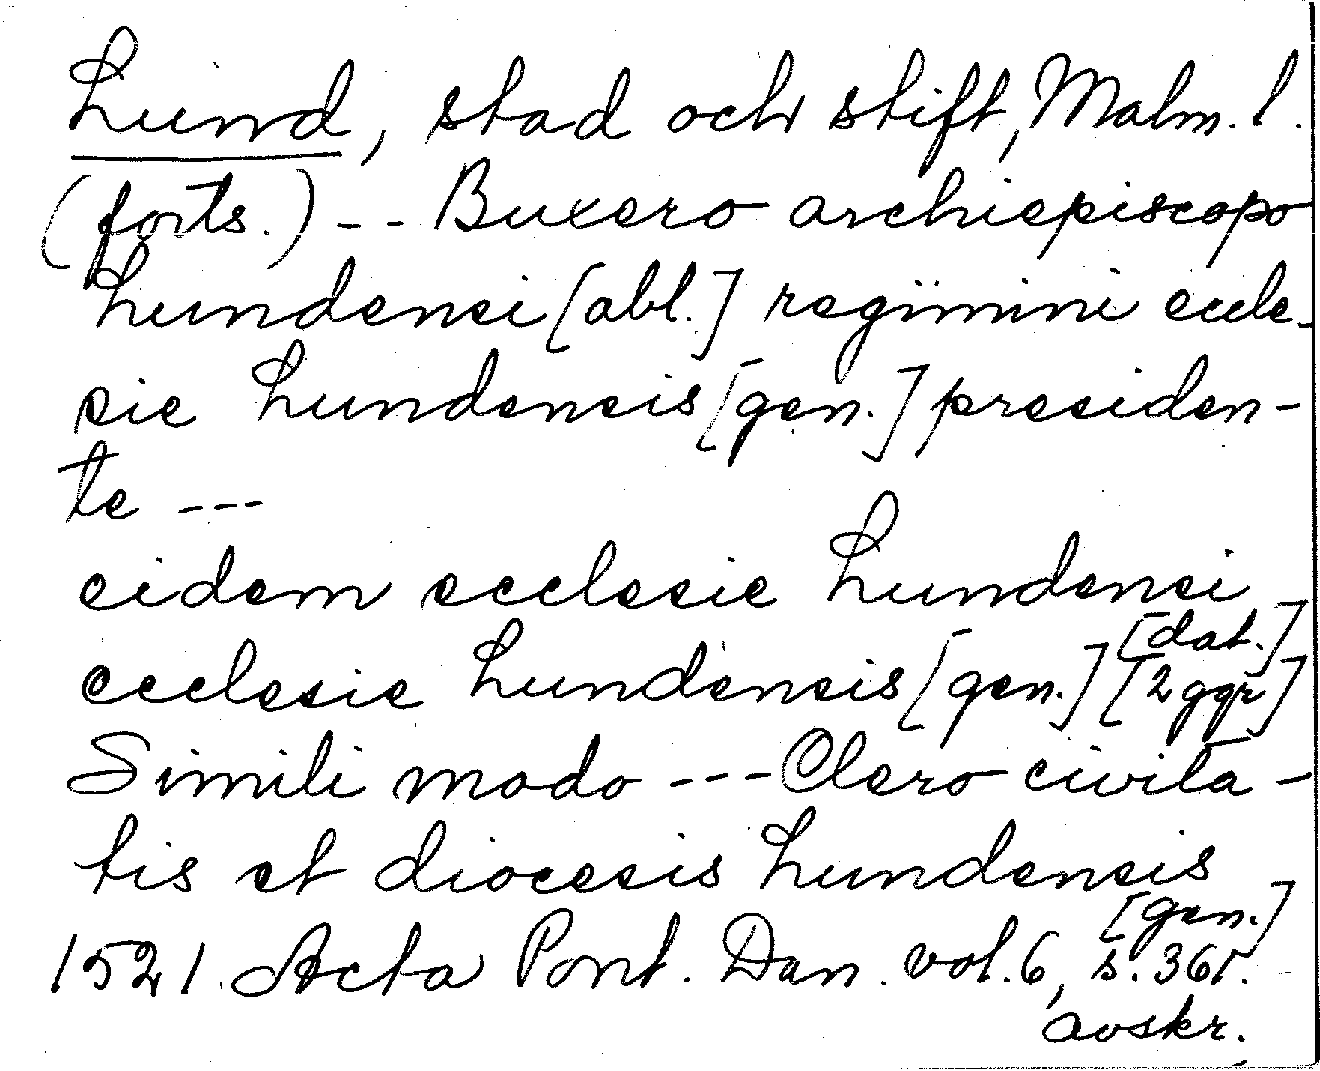 Lund, stad och stift, Malm. l.
(forts.) -- Buxero archiepiscopo
Lundensi [abl.] regimini eccle-
sie Lundensis [gen.] presiden-
te ---
eidem ecclesie Lundensi
[dat.]
ecclesie Lundensis [gen.] [2 ggr]
Simili modo --- Clero civita-
tis et diocesis Lundensis
[gen.]
1521. Acta Pont. Dan. vol. 6, s. 361.
avskr.